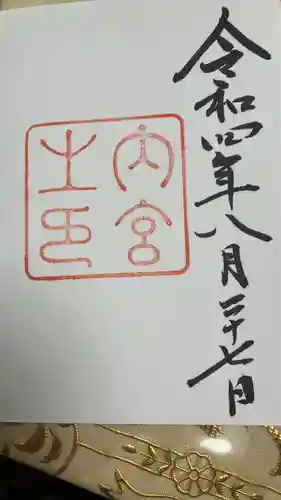 令和四年八月二十七日
内宮
之印